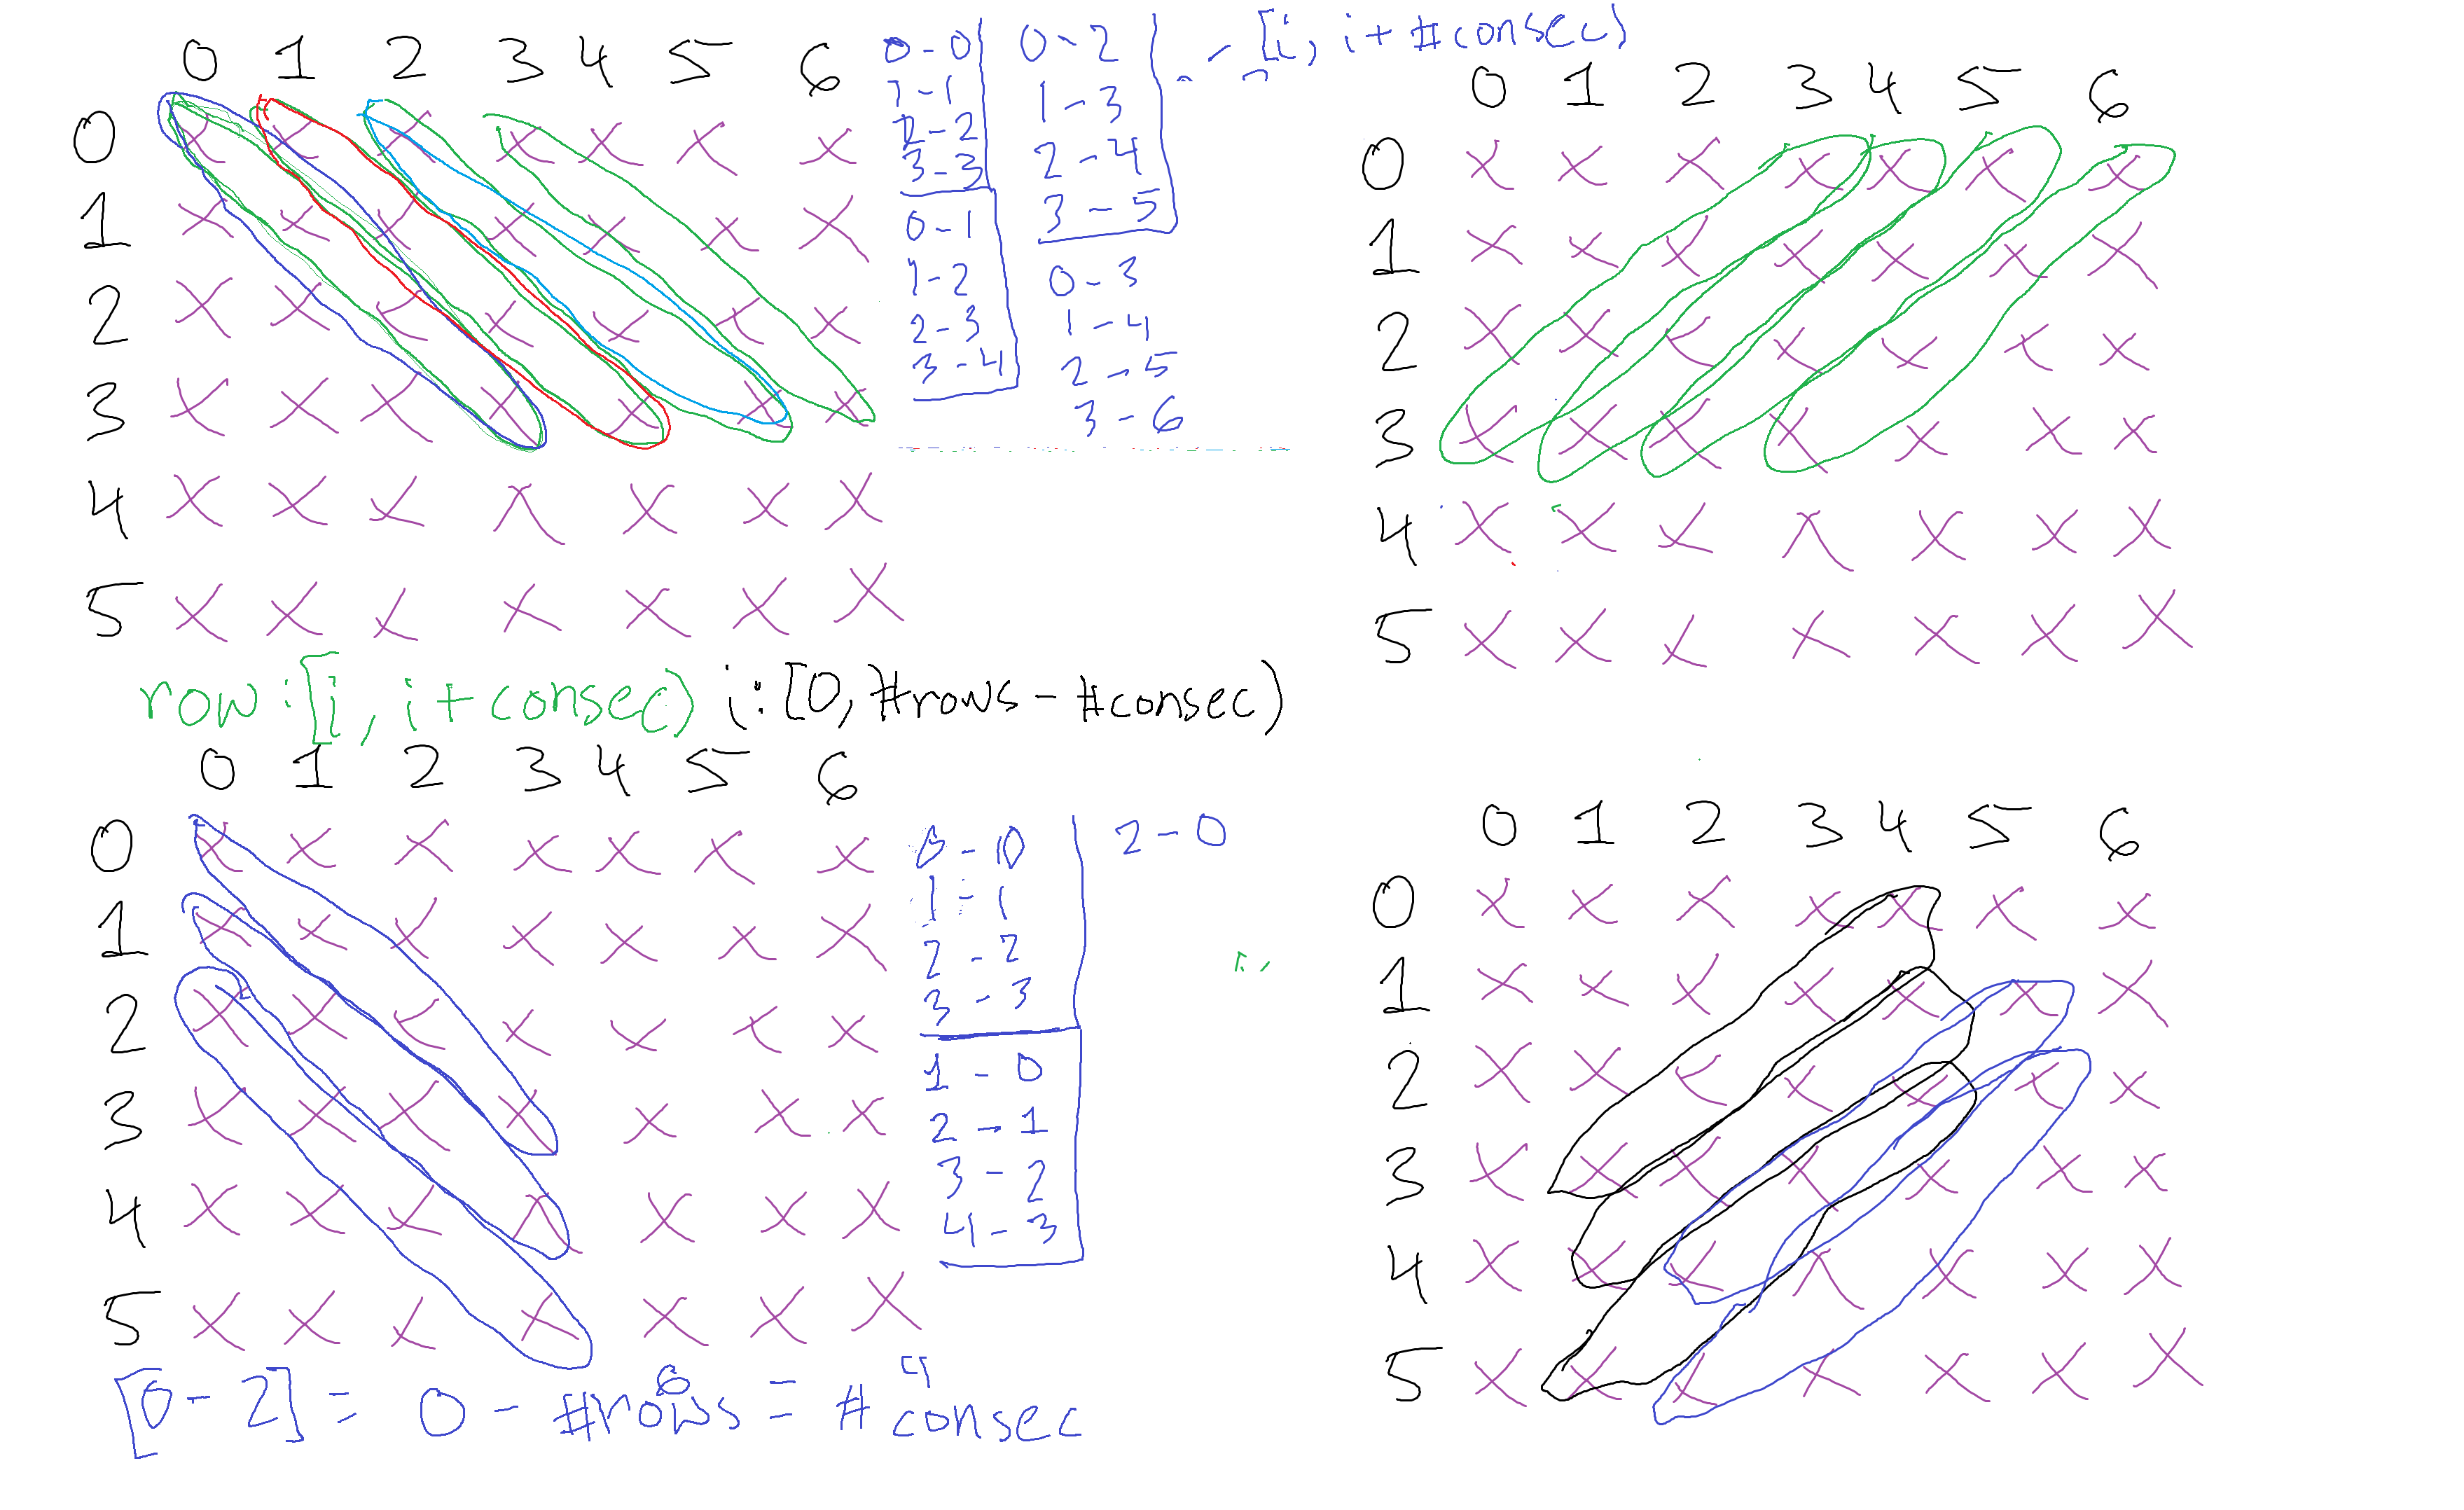 0 1 2 3 4 5 6
0 X X X X X X X
1 X X X X X X X
2 X X X X X X X
3 X X X X X X X
4 X X X X X X X
5 X X X X X X X
0-0
1-1
2-2
3-3
0-1
1-2
2-3
3-4
0-2
1-3
2-4
3-5
0-3
1-4
2-5
3-6
[i, i+#consec)
0 1 2 3 4 5 6
0 X X X X X X X
1 X X X X X X X
2 X X X X X X X
3 X X X X X X X
4 X X X X X X X
5 X X X X X X X
row:[i, i+consec) i:[0,#rows-#consec)
0 1 2 3 4 5 6
0 X X X X X X X
1 X X X X X X X
2 X X X X X X X
3 X X X X X X X
4 X X X X X X X
5 X X X X X X X
0-0
1-1
2-2
3-3
1-0
2-1
3-2
4-3
2-0
0 1 2 3 4 5 6
0 X X X X X X X
1 X X X X X X X
2 X X X X X X X
3 X X X X X X X
4 X X X X X X X
5 X X X X X X X
6 4
[0-2] = 0 - #rows = #consec